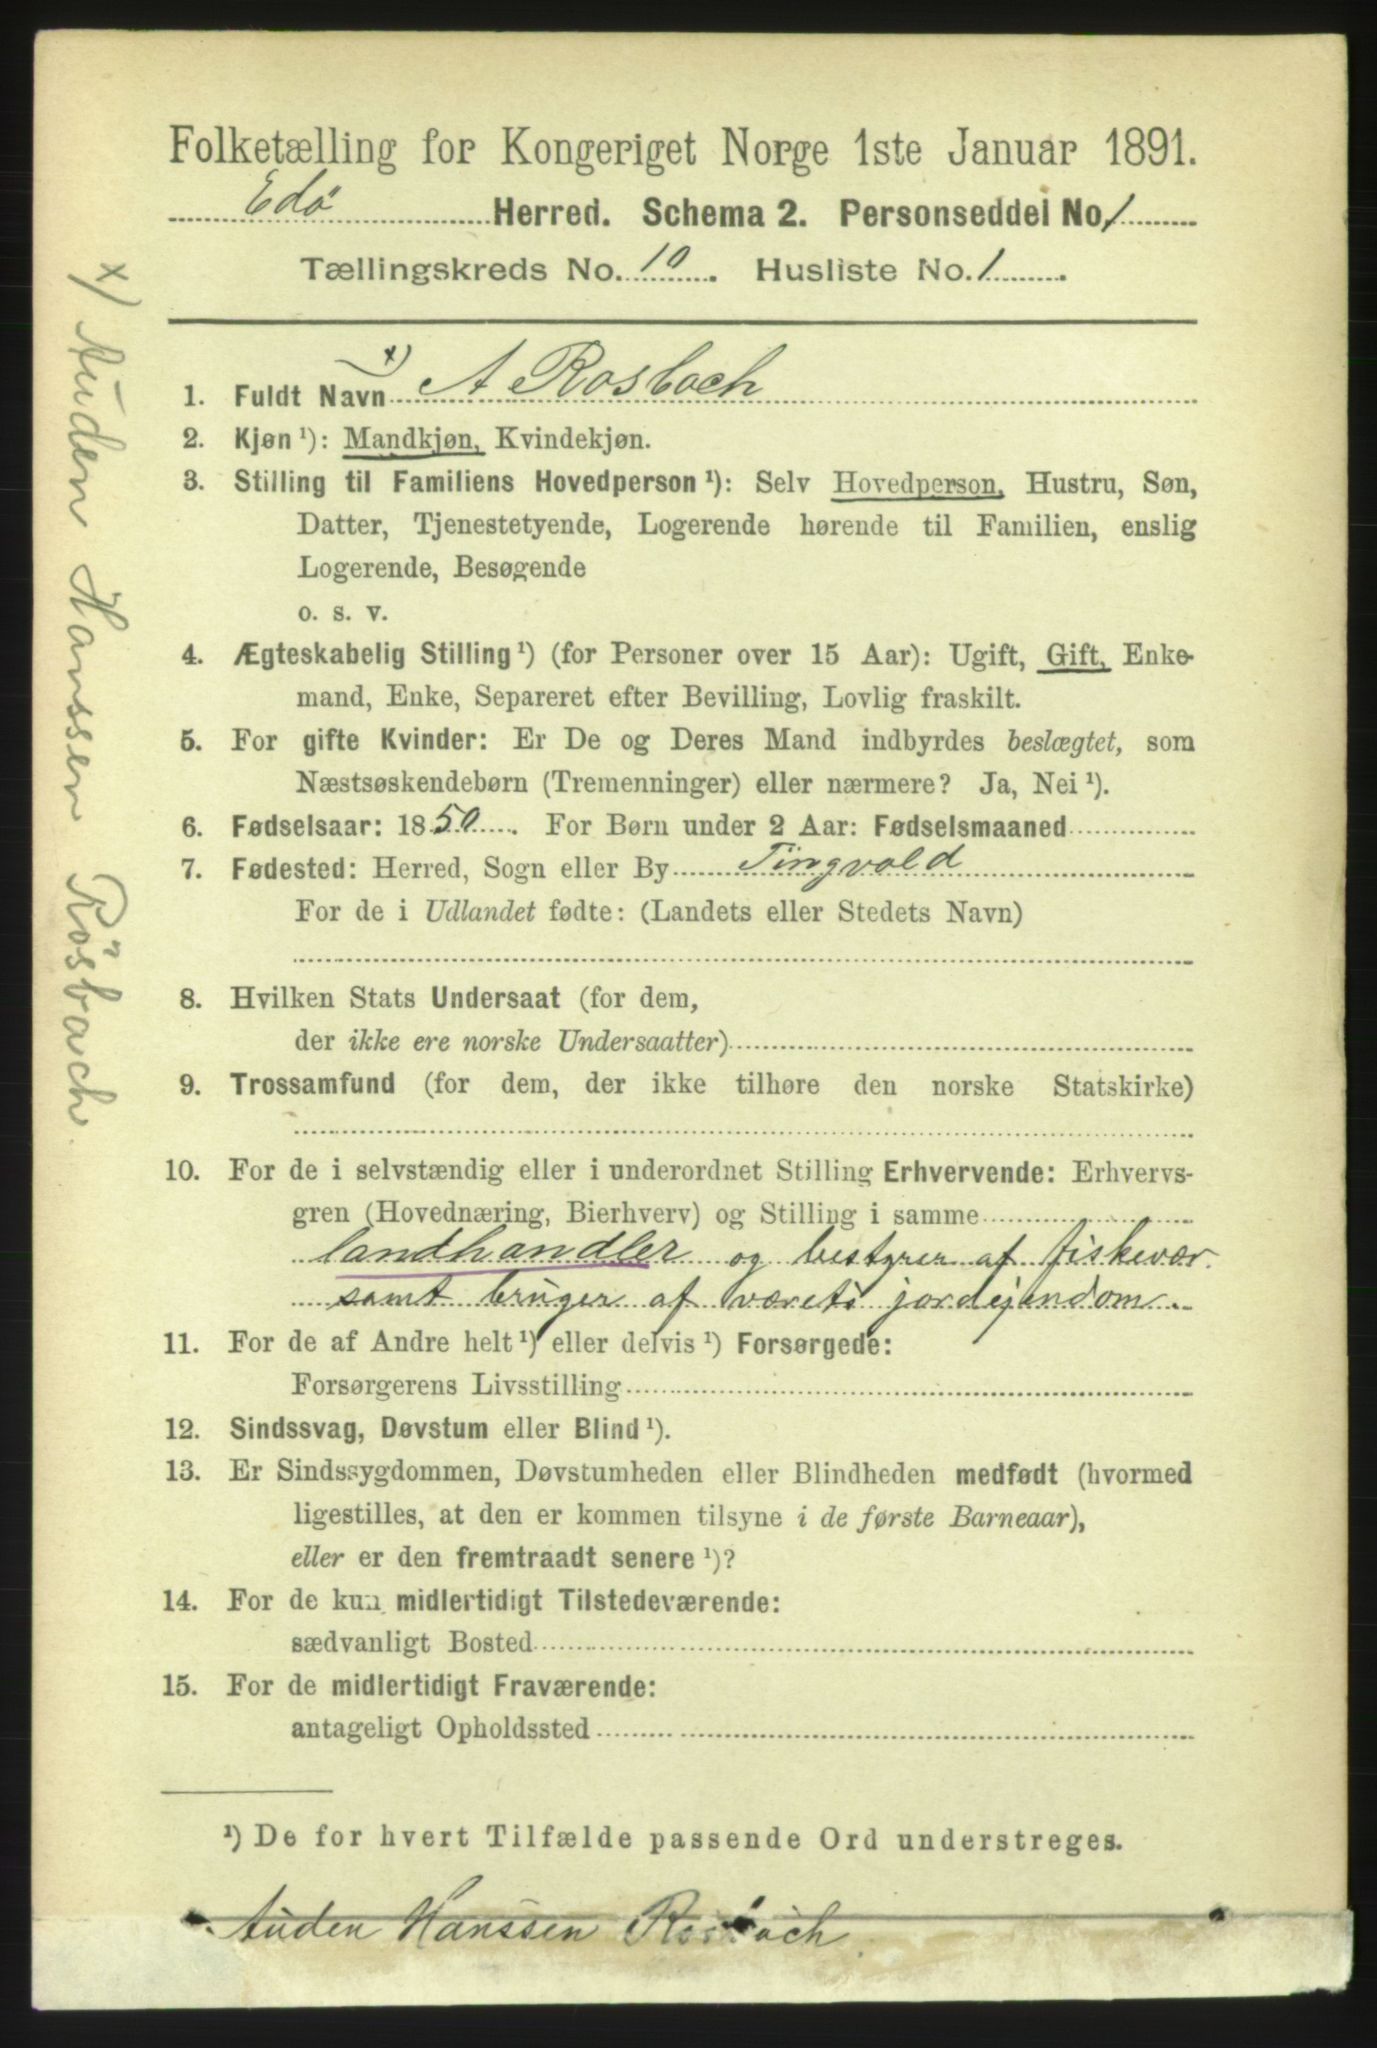 Folketælling for Kongeriget Norge 1ste Januar 1891.
Edø Herred. Schema 2. Personseddel No. 1
Tællingskreds No. 10. Husliste No. 1.
1. Fuldt Navn x) A Rosbach
2. Kjøn ¹): Mandkjøn, Kvindekjøn.
3. Stilling til Familiens Hovedperson ¹): Selv Hovedperson, Hustru, Søn,
Datter, Tjenestetyende, Logerende hørende til Familien, enslig
Logerende, Besøgende
o. s. v.
4. Ægteskabelig Stilling ¹) (for Personer over 15 Aar): Ugift, Gift, Enke-
mand, Enke, Separeret efter Bevilling, Lovlig fraskilt.
5. For gifte Kvinder: Er De og Deres Mand indbyrdes beslægtet, som
Næstsøskendebørn (Tremenninger) eller nærmere? Ja, Nei ¹).
6. Fødselsaar: 1850. For Børn under 2 Aar: Fødselsmaaned
7. Fødested: Herred, Sogn eller By Tingvold
For de i Udlandet fødte: (Landets eller Stedets Navn)
8. Hvilken Stats Undersaat (for dem,
der ikke ere norske Undersaatter)
9. Trossamfund (for dem, der ikke tilhøre den norske Statskirke)
10. For de i selvstændig eller i underordnet Stilling Erhvervende: Erhvervs-
gren (Hovednæring, Bierhverv) og Stilling i samme
landhandler og bestyrer af fiskevær
samt bruger af værets jordejendom.
11. For de af Andre helt ¹) eller delvis ¹) Forsørgede:
Forsørgerens Livsstilling
12. Sindssvag, Døvstum eller Blind ¹).
13. Er Sindssygdommen, Døvstumheden eller Blindheden medfødt (hvormed
ligestilles, at den er kommen tilsyne i de første Barneaar),
eller er den fremtraadt senere ¹)?
14. For de kun midlertidigt Tilstedeværende:
sædvanligt Bosted
15. For de midlertidigt Fraværende:
antageligt Opholdssted
¹) De for hvert Tilfælde passende Ord understreges.
Auden Hanssen Rosbach
x) Auden Hanssen Rösbach